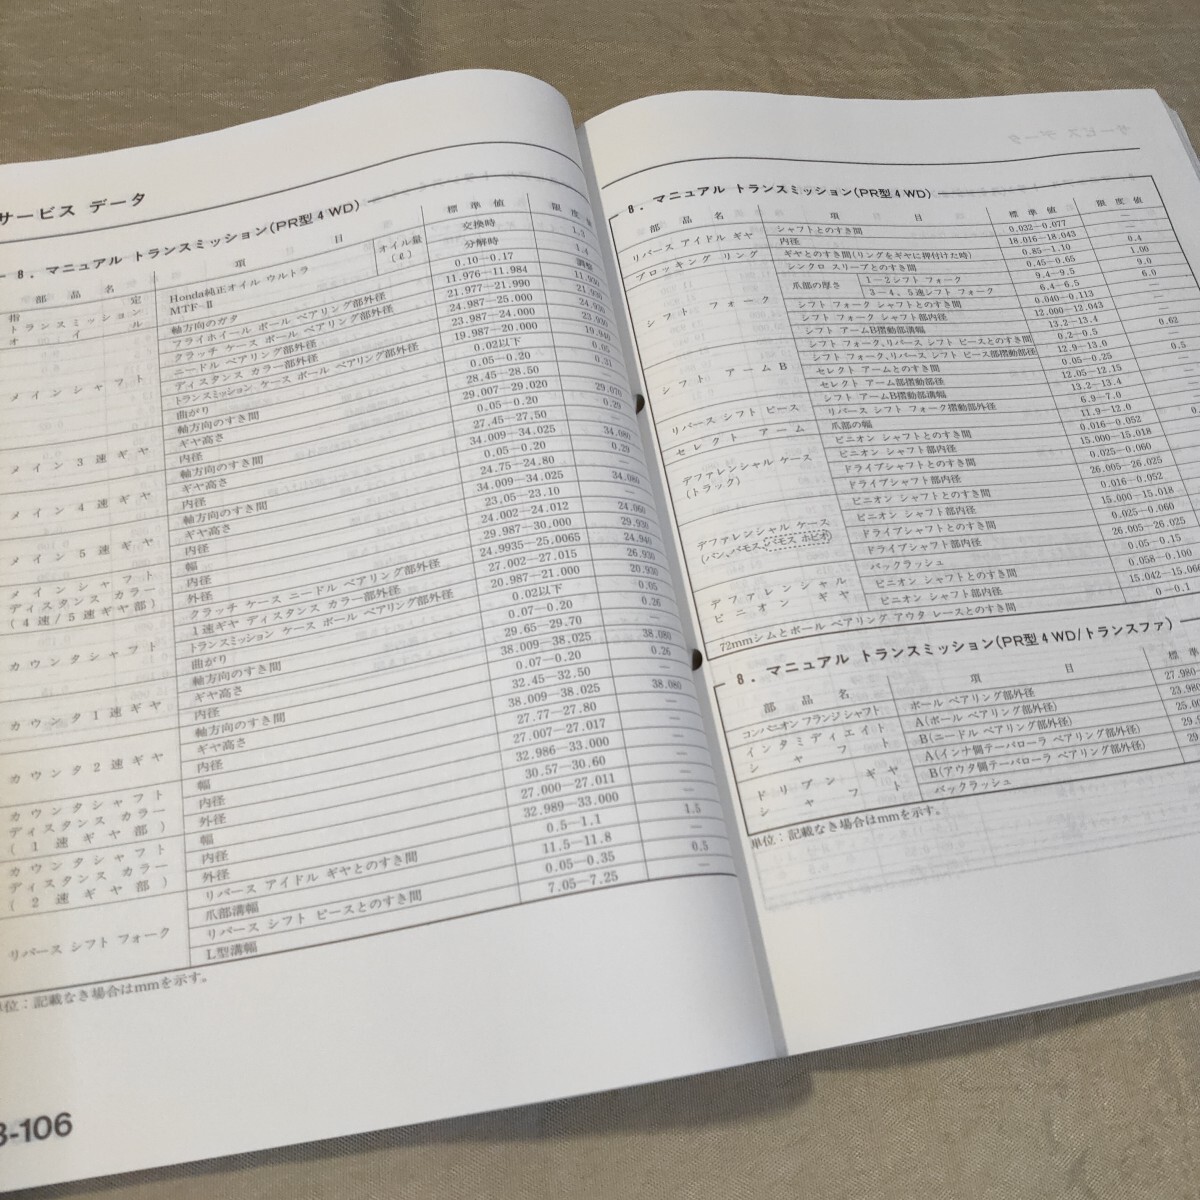 サービス データ
8．マニュアル トランスミッション(PR型4WD)
部品名 項目 標準値 限度値
指定トランスミッションオイル Honda純正オイル ウルトラ MTF-Ⅱ オイル量(ℓ) 交換時 1.3
分解時 1.4
メインシャフト 軸方向のガタ 0.10−0.17 調整
フライホイール ボール ベアリング部外径 11.976−11.984 11.930
クラッチ ケース ボール ベアリング部外径 21.977−21.990 21.930
ニードル ベアリング部外径 24.987−25.000 24.930
ディスタンス カラー部外径 23.987−24.000 23.930
トランスミッション ケース ボール ベアリング部外径 19.987−20.000 19.940
曲がり 0.02以下 0.05
メイン3速ギヤ 軸方向のすき間 0.05−0.20 0.31
ギヤ高さ 28.45−28.50
内径 29.007−29.020 29.070
メイン4速ギヤ 軸方向のすき間 0.05−0.20 0.29
ギヤ高さ 27.45−27.50
内径 34.009−34.025 34.080
メイン5速ギヤ 軸方向のすき間 0.05−0.20 0.29
ギヤ高さ 24.75−24.80 —
内径 34.009−34.025 34.080
メインシャフト ディスタンス カラー (4速/5速ギヤ部) 幅 23.05−23.10 —
内径 24.002−24.012 24.060
外径 29.987−30.000 29.930
カウンタシャフト クラッチ ケース ニードル ベアリング部外径 24.9935−25.0065 24.940
1速ギヤ ディスタンス カラー部外径 27.002−27.015 26.930
トランスミッション ケース ボール ベアリング部外径 20.987−21.000 20.930
曲がり 0.02以下 0.05
カウンタ1速ギヤ 軸方向のすき間 0.07−0.20 0.26
ギヤ高さ 29.65−29.70 —
内径 38.009−38.025 38.080
カウンタ2速ギヤ 軸方向のすき間 0.07−0.20 0.26
ギヤ高さ 32.45−32.50 —
内径 38.009−38.025 38.080
カウンタシャフト ディスタンス カラー (1速ギヤ部) 幅 27.77−27.80 —
内径 27.007−27.017 —
外径 32.986−33.000 —
カウンタシャフト ディスタンス カラー (2速ギヤ部) 幅 30.57−30.60 —
内径 27.000−27.011 —
外径 32.989−33.000 —
リバース シフト フォーク リバース アイドル ギヤとのすき間 0.5−1.1 1.5
爪部溝幅 11.5−11.8 —
リバース シフト ピースとのすき間 0.05−0.35 0.5
L型溝幅 7.05−7.25 —
単位：記載なき場合はmmを示す。
-106
8．マニュアル トランスミッション(PR型4WD)
部品名 項目 標準値 限度値
リバース アイドル ギヤ シャフトとのすき間 0.032−0.077
内径 18.016−18.043 —
ブロッキング リング ギヤとのすき間(リングをギヤに押付けた時) 0.85−1.10 0.4
シフト フォーク シンクロ スリーブとのすき間 0.45−0.65 1.00
爪部の厚さ 1−2シフト フォーク 9.4−9.5 9.0
3−4、5速シフト フォーク 6.4−6.5 6.0
シフト フォーク シャフトとのすき間 0.040−0.113
シフト フォーク シャフト部内径 12.000−12.043
シフト アームB摺動部溝幅 13.2−13.4
シフト アームB シフト フォーク、リバース シフト ピースとのすき間 0.2−0.5 0.62
シフト フォーク、リバース シフト ピース部摺動部径 12.9−13.0 —
セレクト アームとのすき間 0.05−0.25 0.5
セレクト アーム部摺動部径 12.05−12.15 —
リバース シフト ピース シフト アームB摺動部溝幅 13.2−13.4
リバース シフト フォーク摺動部外径 6.9−7.0
セレクト アーム 爪部の幅 11.9−12.0
デファレンシャル ケース (トラック) ピニオン シャフトとのすき間 0.016−0.052
ピニオン シャフト部内径 15.000−15.018
ドライブシャフトとのすき間 0.025−0.060
ドライブシャフト部内径 26.005−26.025
デファレンシャル ケース (バン、バモス、バモス ホビオ) ピニオン シャフトとのすき間 0.016−0.052
ピニオン シャフト部内径 15.000−15.018
ドライブシャフトとのすき間 0.025−0.060
ドライブシャフト部内径 26.005−26.025
デファレンシャル ピニオン ギヤ バックラッシュ 0.05−0.15
ピニオン シャフトとのすき間 0.058−0.100
ピニオン シャフト部内径 15.042−15.066
72mmシムとボール ベアリング アウタ レースとのすき間 0−0.1
8．マニュアル トランスミッション(PR型4WD/トランスファ)
部品名 項目 標準
コンパニオン フランジ シャフト ボール ベアリング部外径 27.980−
インタミディエイト シャフト A(ボール ベアリング部外径) 23.980
B(ニードル ベアリング部外径) 25.00
ドリブン ギヤ シャフト A(インナ側テーパローラ ベアリング部外径)
B(アウタ側テーパローラ ベアリング部外径)
バックラッシュ
単位：記載なき場合はmmを示す。